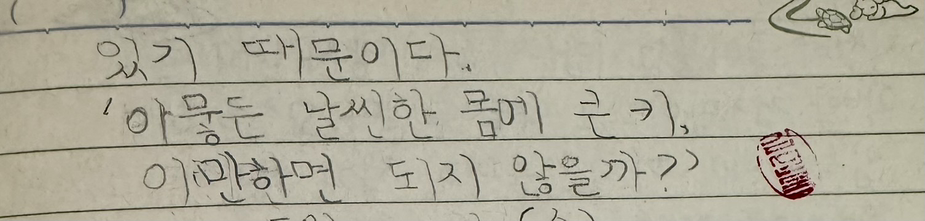 있기 때문이다.
'아뭏든 날씬한 몸에 큰 키,
이만하면 되지 않을까?'